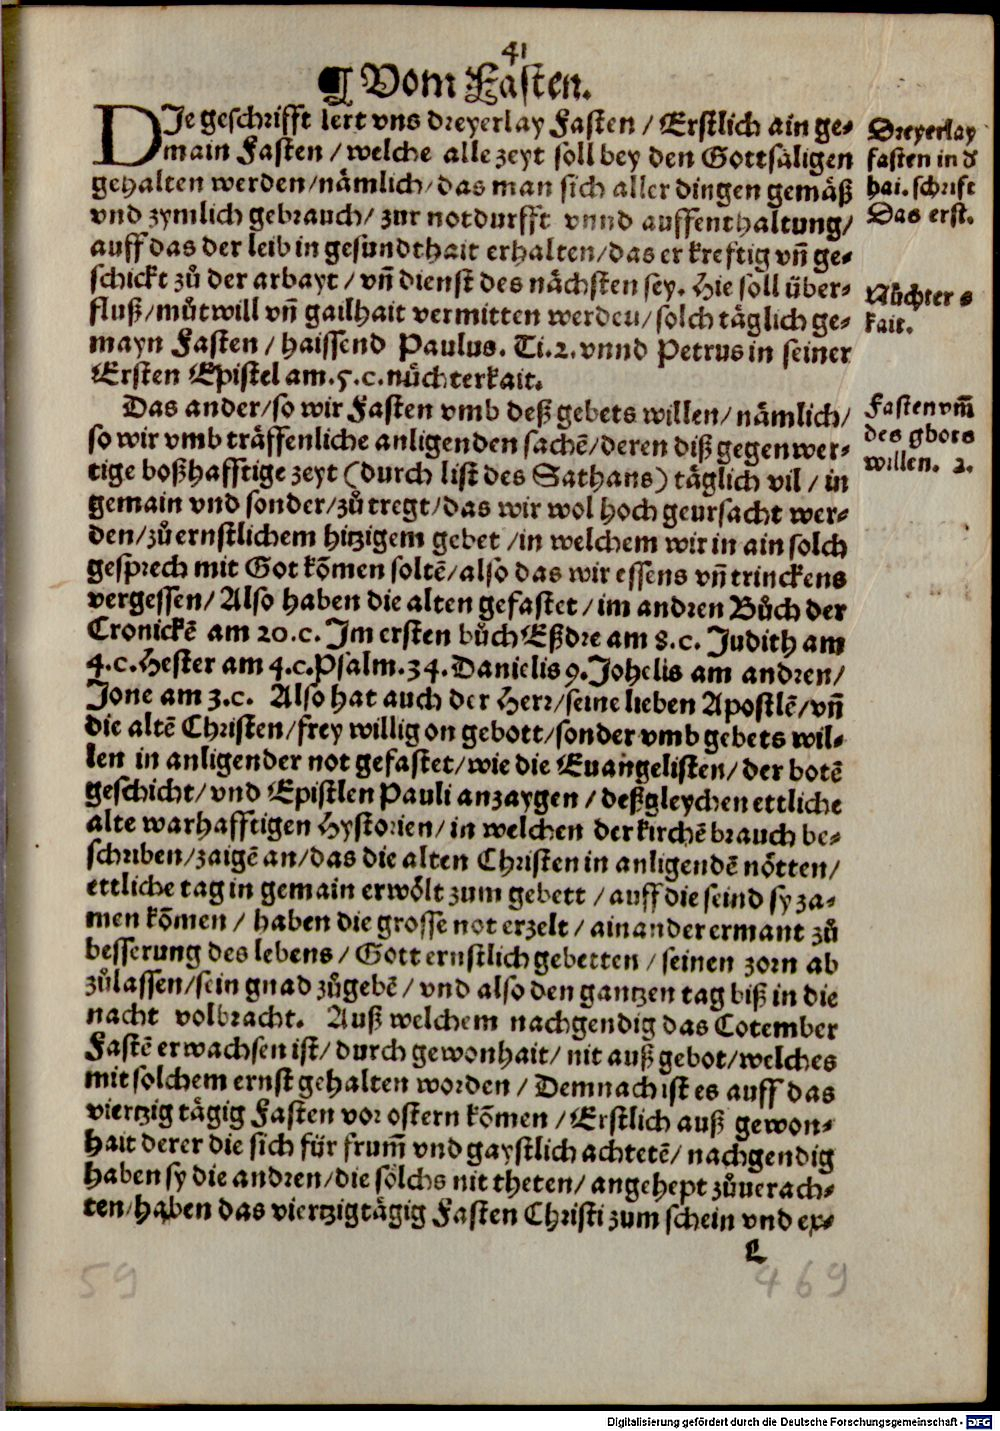 41
¶ Vom Fasten.
DIe geschrifft lert vns dreyerlay Fasten / Erstlich ain ge⸗
main Fasten / welche alle zeyt soll bey den Gottsäligen
gehalten werden/nämlich/das man sich aller dingen gemäß
vnd zymlich gebrauch/ zur notdurfft vnnd auffenthaltung/
auff das der leib in gesundthait erhalten/das er kreftig vñ ge⸗
schickt zů der arbayt / vñ dienst des nächsten sey. Hie soll über⸗
fluß/můtwill vñ gailhait vermitten werden/solch täglich ge⸗
mayn Fasten / haissend Paulus. Ti.2. vnnd Petrus in seiner
Ersten Epistel am.5.c.nüchterkait.
Dreyerlay
fasten in d'
hai. schrift
Das erst.
Nüchter⸗
kait.
Das ander/so wir Fasten vmb deß gebets willen/nämlich/
so wir vmb träffenliche anligenden sachē/deren diß gegenwer⸗
tige boßhafftige zeyt (durch list des Sathans) täglich vil / in
gemain vnd sonder/zů tregt/das wir wol hoch geursacht wer⸗
den/zů ernstlichem hitzigem gebet /in welchem wir in ain solch
gesprech mit Got kōmen soltē/also das wir essens vñ trinckens
vergessen/ Also haben die alten gefastet / im andren Bůch der
Cronickē am 20.c. Im ersten bůch Eßdre am 8.c. Judith am
4.c.Hester am 4.c.Psalm.34.Danielis 9.Johelis am andren/
Jone am 3.c. Also hat auch der Herr/seine lieben Apostlē/vñ
die altē Christen/frey willig on gebott/sonder vmb gebets wil⸗
len in anligender not gefastet/wie die Euangelisten/ der botē
geschicht/ vnd Epistlen Pauli anzaygen / deßgleychen ettliche
alte warhafftigen Hystorien/ in welchen der kirchē brauch be⸗
schriben/zaigē an/das die alten Christen in anligendē nötten/
ettliche tag in gemain erwölt zum gebett / auff die seind sy za⸗
men kōmen / haben die grosse not erzelt / ainander ermant zů
besserung des lebens / Gott ernstlich gebetten / seinen zorn ab
zůlassen/sein gnad zůgebē / vnd also den gantzen tag biß in die
nacht volbracht. Auß welchem nachgendig das Cotember
Fastē erwachsen ist/ durch gewonhait/ nit auß gebot/welches
mit solchem ernst gehalten worden / Demnach ist es auff das
viertzig tägig Fasten vor ostern kōmen / Erstlich auß gewon⸗
hait derer die sich für frum̃ vnd gaystlich achtetē/ nachgendig
haben sy die andren/die sölchs nit theten/ angehept zůuerach⸗
ten/haben das viertzigtägig Fasten Christi zum schein vnd ex⸗
Fasten vm̃
des gbots
willen. 2.
L
59
469
Digitalisierung gefördert durch die Deutsche Forschungsgemeinschaft - DFG